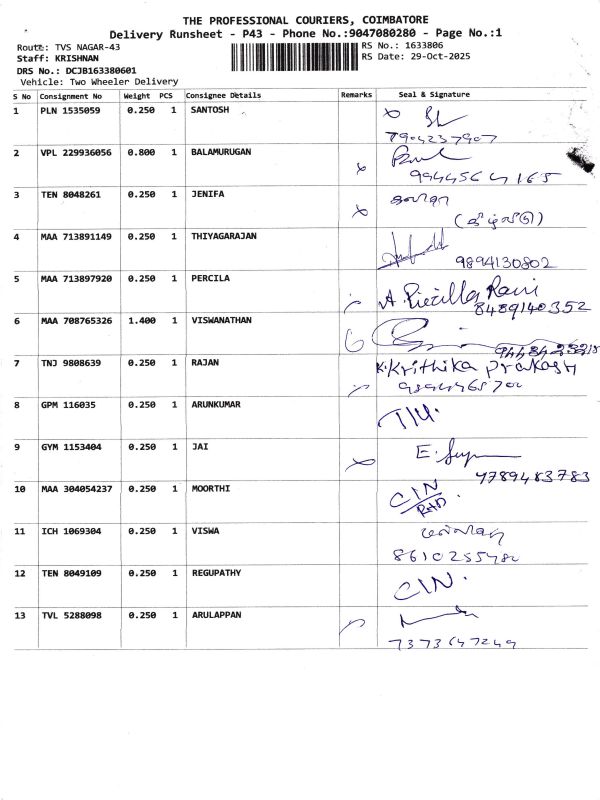 THE PROFESSIONAL COURIERS, COIMBATORE
Delivery Runsheet - P43 - Phone No.:9047080280 - Page No.:1
Route: TVS NAGAR-43 RS No.: 1633806
Staff: KRISHNAN RS Date: 29-Oct-2025
DRS No.: DCJB163380601
Vehicle: Two Wheeler Delivery
S No Consignment No Weight PCS Consignee Details Remarks Seal & Signature
1 PLN 1535059 0.250 1 SANTOSH
7904237907
2 VPL 229936056 0.800 1 BALAMURUGAN
9944564165
3 TEN 8048261 0.250 1 JENIFA
4 MAA 713891149 0.250 1 THIYAGARAJAN
9894130802
5 MAA 713897920 0.250 1 PERCILA
8489140352
6 MAA 708765326 1.400 1 VISWANATHAN
7 TNJ 9808639 0.250 1 RAJAN K.Krithika prakash
8 GPM 116035 0.250 1 ARUNKUMAR
9 GYM 1153404 0.250 1 JAI
4789483783
10 MAA 304054237 0.250 1 MOORTHI CIN
11 ICH 1069304 0.250 1 VISWA
12 TEN 8049109 0.250 1 REGUPATHY CIN.
13 TVL 5288098 0.250 1 ARULAPPAN
7373647249